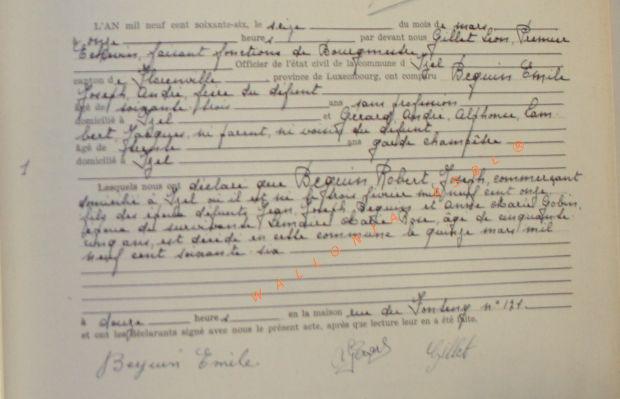 L'AN mil neuf cent soixante-six, le seize du mois de mars
à onze heures par devant nous Gillet Léon, Premier
Echevin, faisant fonctions de Bourgmestre
Officier de l'état civil de la commune d'Izel
canton de Florenville, province de Luxembourg, ont comparu Bequin Emile
Joseph, André, frère du défunt
âgé de soixante trois ans sans profession
domicilié à Izel et Gérard André, Alphonse, Lam-
bert, Jacques, ni parent, ni voisin du défunt
âgé de trente ans garde champêtre
domicilié à Izel
1
Lesquels nous ont déclaré que Bequin Robert, Joseph, commerçant
domicilié à Izel où il est né le trois février mil neuf cent onze
fils des époux défunts Jean, Joseph Bequin et Anne Marie Gobin,
époux de survivante Lemaire Marie Rose, âgé de cinquante
cinq ans, est décédé en cette commune le quinze mars mil
neuf cent soixante six
à douze heures en la maison rue du Fonteny n° 121.
et ont les déclarants signé avec nous le présent acte, après que lecture leur en a été faite.
Bequin Emile Gillet
WALLONIA ASBL ®